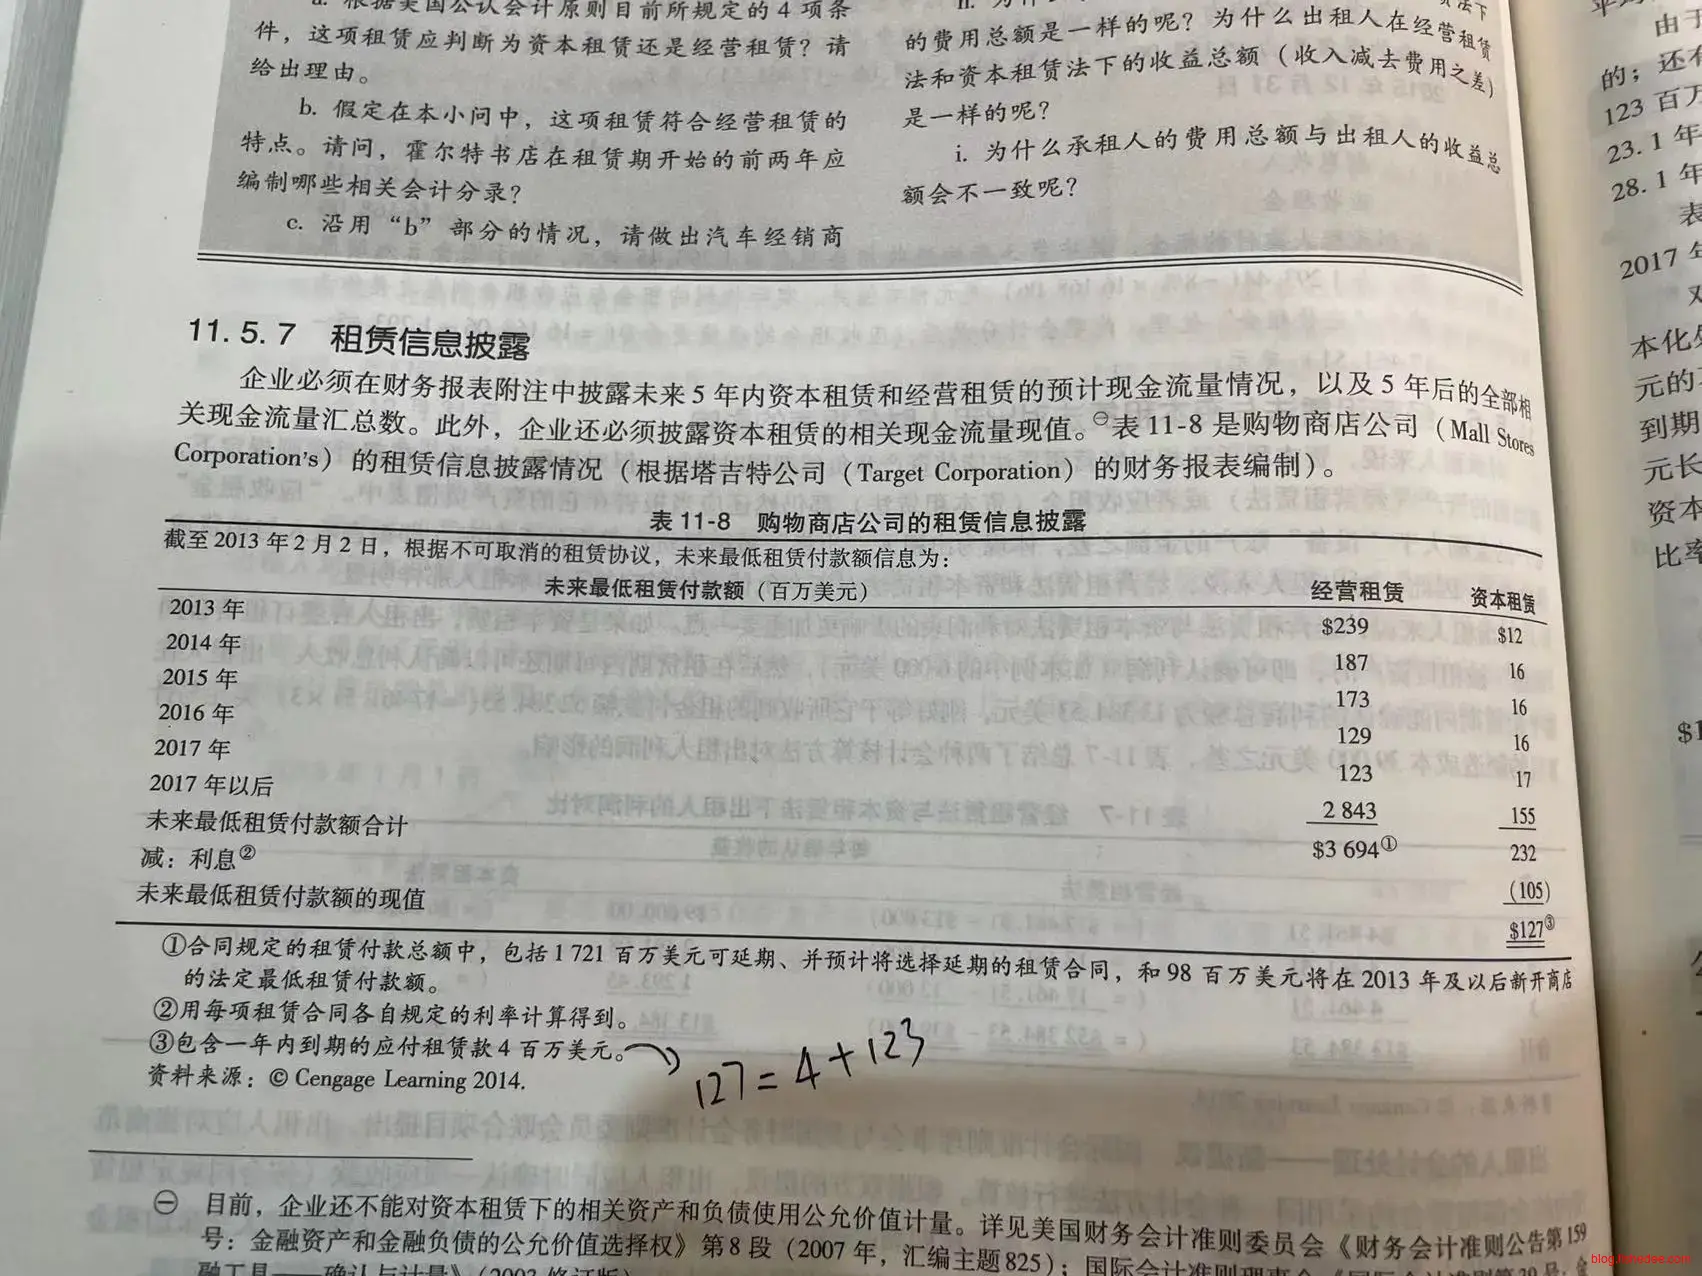 a. 根据美国公认会计原则目前所规定的4项条
件，这项租赁应判断为资本租赁还是经营租赁？请
给出理由。
b. 假定在本小问中，这项租赁符合经营租赁的
特点。请问，霍尔特书店在租赁期开始的前两年应
编制哪些相关会计分录？
c. 沿用“b”部分的情况，请做出汽车经销商
的费用总额是一样的呢？为什么出租人在经营租赁
法和资本租赁法下的收益总额（收入减去费用之差）
是一样的呢？
i. 为什么承租人的费用总额与出租人的收益总
额会不一致呢？
11.5.7 租赁信息披露
企业必须在财务报表附注中披露未来5年内资本租赁和经营租赁的预计现金流量情况，以及5年后的全部相
关现金流量汇总数。此外，企业还必须披露资本租赁的相关现金流量现值。㊀表11-8是购物商店公司（Mall Stores
Corporation's）的租赁信息披露情况（根据塔吉特公司（Target Corporation）的财务报表编制）。
表11-8 购物商店公司的租赁信息披露
截至2013年2月2日，根据不可取消的租赁协议，未来最低租赁付款额信息为：
未来最低租赁付款额（百万美元） 经营租赁 资本租赁
2013年 $239 $12
2014年 187 16
2015年 173 16
2016年 129 16
2017年 123 17
2017年以后 2 843 155
未来最低租赁付款额合计 $3 694① 232
减：利息② (105)
未来最低租赁付款额的现值 $127③
①合同规定的租赁付款总额中，包括1 721百万美元可延期、并预计将选择延期的租赁合同，和98百万美元将在2013年及以后新开商店
的法定最低租赁付款额。
②用每项租赁合同各自规定的利率计算得到。
③包含一年内到期的应付租赁款4百万美元。
127=4+123
资料来源：© Cengage Learning 2014.
㊀ 目前，企业还不能对资本租赁下的相关资产和负债使用公允价值计量。详见美国财务会计准则委员会《财务会计准则公告第159
号：金融资产和金融负债的公允价值选择权》第8段（2007年，汇编主题825）；国际会计准则理事会
由于
的；还有
123百万
23.1年
28.1年
2017年
本化处
元的
到期
元长
资本
比率